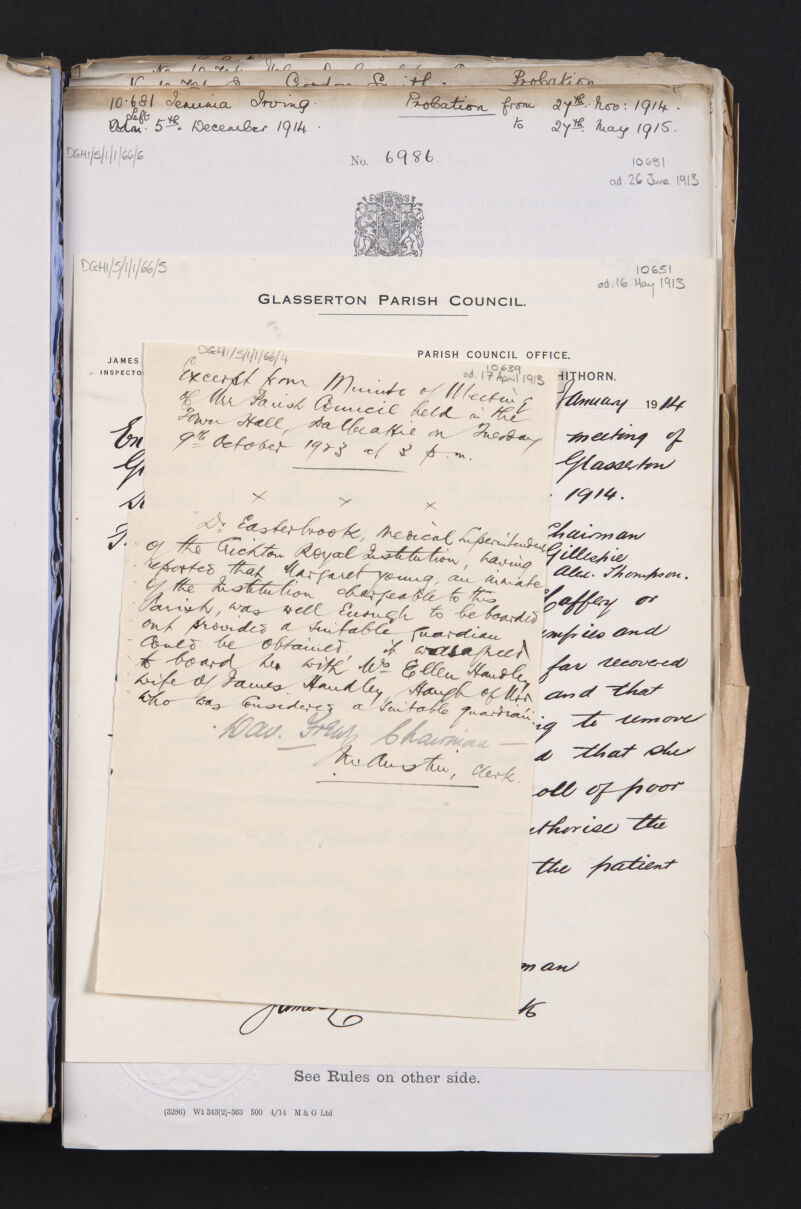 Gordon Smith. Probation
10.681 Jemima Irving. Probation from 27th Nov: 1914.
Left
Adm. 5th December 1914. to 27th May 1915.
DGH1/5/1/1/66/6
No. 6986.
10681
ad. 26 June 1913
DGH1/5/1/1/66/5
10651
ad. 16 May 1913
GLASSERTON PARISH COUNCIL.
JAMES
INSPECTO
PARISH COUNCIL OFFICE,
HITHORN.
January 1914
meeting of
Glasserton
1914.
Chairman
Gillespie
Alex. Thompson.
Caffery or
umpies and
far recovered
and that
ng to remove
d that she
oll of poor
uthorise the
the patient
man
See Rules on other side.
(3286) Wt 343(2)-563 500 4/14 M & G Ltd
DGH1/5/1/1/66/4
10639
ad. 17 April 1913
Excerpt from Minute of Meeting
of the Parish Council held in the
Town Hall, Dalbeattie on Tuesday
9th October 1923 at 3 p.m.
x x x
Dr Easterbrook, Medical Superintendent
of the Crichton Royal Institution, having
reported that Margaret Young, an inmate
of the Institution chargeable to this
Parish, was well enough to be boarded
out provided a suitable guardian
could be obtained it was agreed
to board her with Mrs Ellen Handley
wife of James Handley, Haugh of Urr
who was considered a suitable guardian.
Chairman
Clerk.